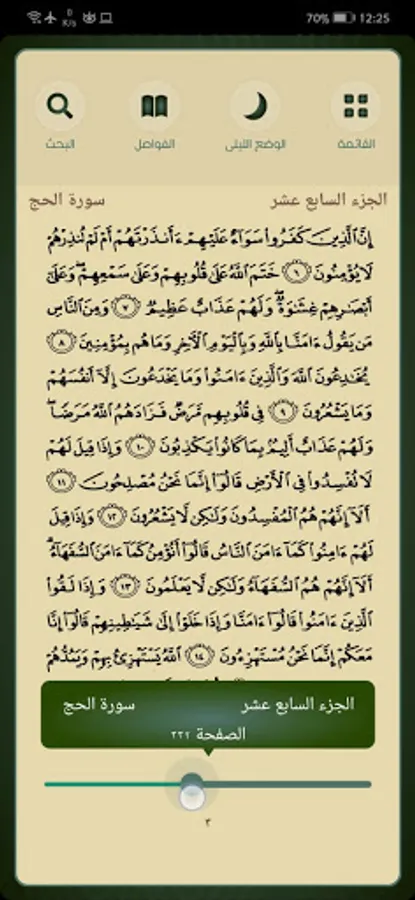 0 K/s 70% 12:25
القائمة الوضع الليلي الفواصل البحث
الجزء السابع عشر سورة الحج
إِنَّ ٱلَّذِينَ كَفَرُوا۟ سَوَآءٌ عَلَيْهِمْ ءَأَنذَرْتَهُمْ أَمْ لَمْ تُنذِرْهُمْ
لَا يُؤْمِنُونَ ٦ خَتَمَ ٱللَّهُ عَلَىٰ قُلُوبِهِمْ وَعَلَىٰ سَمْعِهِمْ ۖ وَعَلَىٰٓ
أَبْصَـٰرِهِمْ غِشَـٰوَةٌ ۖ وَلَهُمْ عَذَابٌ عَظِيمٌ ٧ وَمِنَ ٱلنَّاسِ
مَن يَقُولُ ءَامَنَّا بِٱللَّهِ وَبِٱلْيَوْمِ ٱلْـَٔاخِرِ وَمَا هُم بِمُؤْمِنِينَ ٨
يُخَـٰدِعُونَ ٱللَّهَ وَٱلَّذِينَ ءَامَنُوا۟ وَمَا يَخْدَعُونَ إِلَّآ أَنفُسَهُمْ
وَمَا يَشْعُرُونَ ٩ فِى قُلُوبِهِم مَّرَضٌ فَزَادَهُمُ ٱللَّهُ مَرَضًا ۖ
وَلَهُمْ عَذَابٌ أَلِيمٌۢ بِمَا كَانُوا۟ يَكْذِبُونَ ١٠ وَإِذَا قِيلَ لَهُمْ
لَا تُفْسِدُوا۟ فِى ٱلْأَرْضِ قَالُوٓا۟ إِنَّمَا نَحْنُ مُصْلِحُونَ ١١
أَلَآ إِنَّهُمْ هُمُ ٱلْمُفْسِدُونَ وَلَـٰكِن لَّا يَشْعُرُونَ ١٢ وَإِذَا قِيلَ
لَهُمْ ءَامِنُوا۟ كَمَآ ءَامَنَ ٱلنَّاسُ قَالُوٓا۟ أَنُؤْمِنُ كَمَآ ءَامَنَ ٱلسُّفَهَآءُ ۗ
أَلَآ إِنَّهُمْ هُمُ ٱلسُّفَهَآءُ وَلَـٰكِن لَّا يَعْلَمُونَ ١٣ وَإِذَا لَقُوا۟
ٱلَّذِينَ ءَامَنُوا۟ قَالُوٓا۟ ءَامَنَّا وَإِذَا خَلَوْا۟ إِلَىٰ شَيَـٰطِينِهِمْ قَالُوٓا۟ إِنَّا
مَعَكُمْ إِنَّمَا نَحْنُ مُسْتَهْزِءُونَ ١٤ ٱللَّهُ يَسْتَهْزِئُ بِهِمْ وَيَمُدُّهُمْ
الجزء السابع عشر سورة الحج
الصفحة ٣٣٢
٣